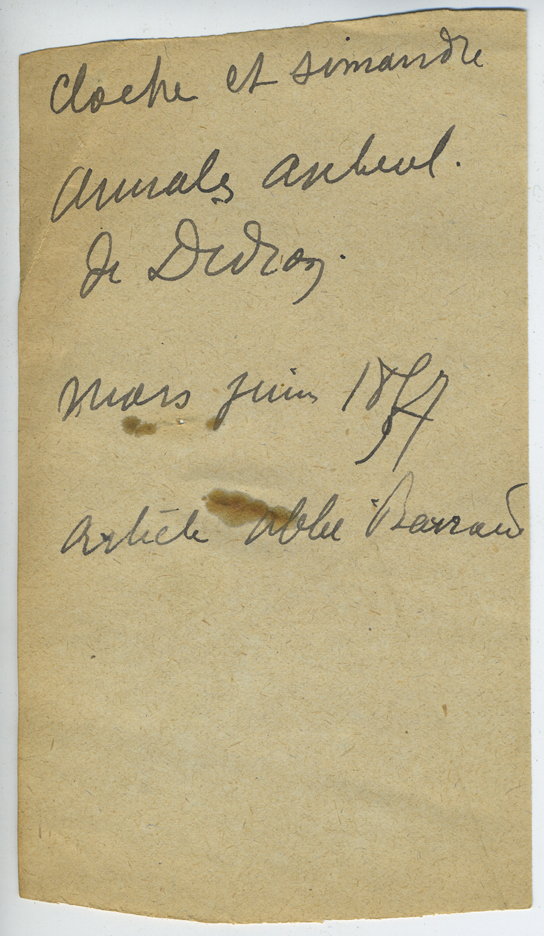 cloche et simandre
Annales archeol.
de Didron.
mars juin 1857
Article abbé Barraud